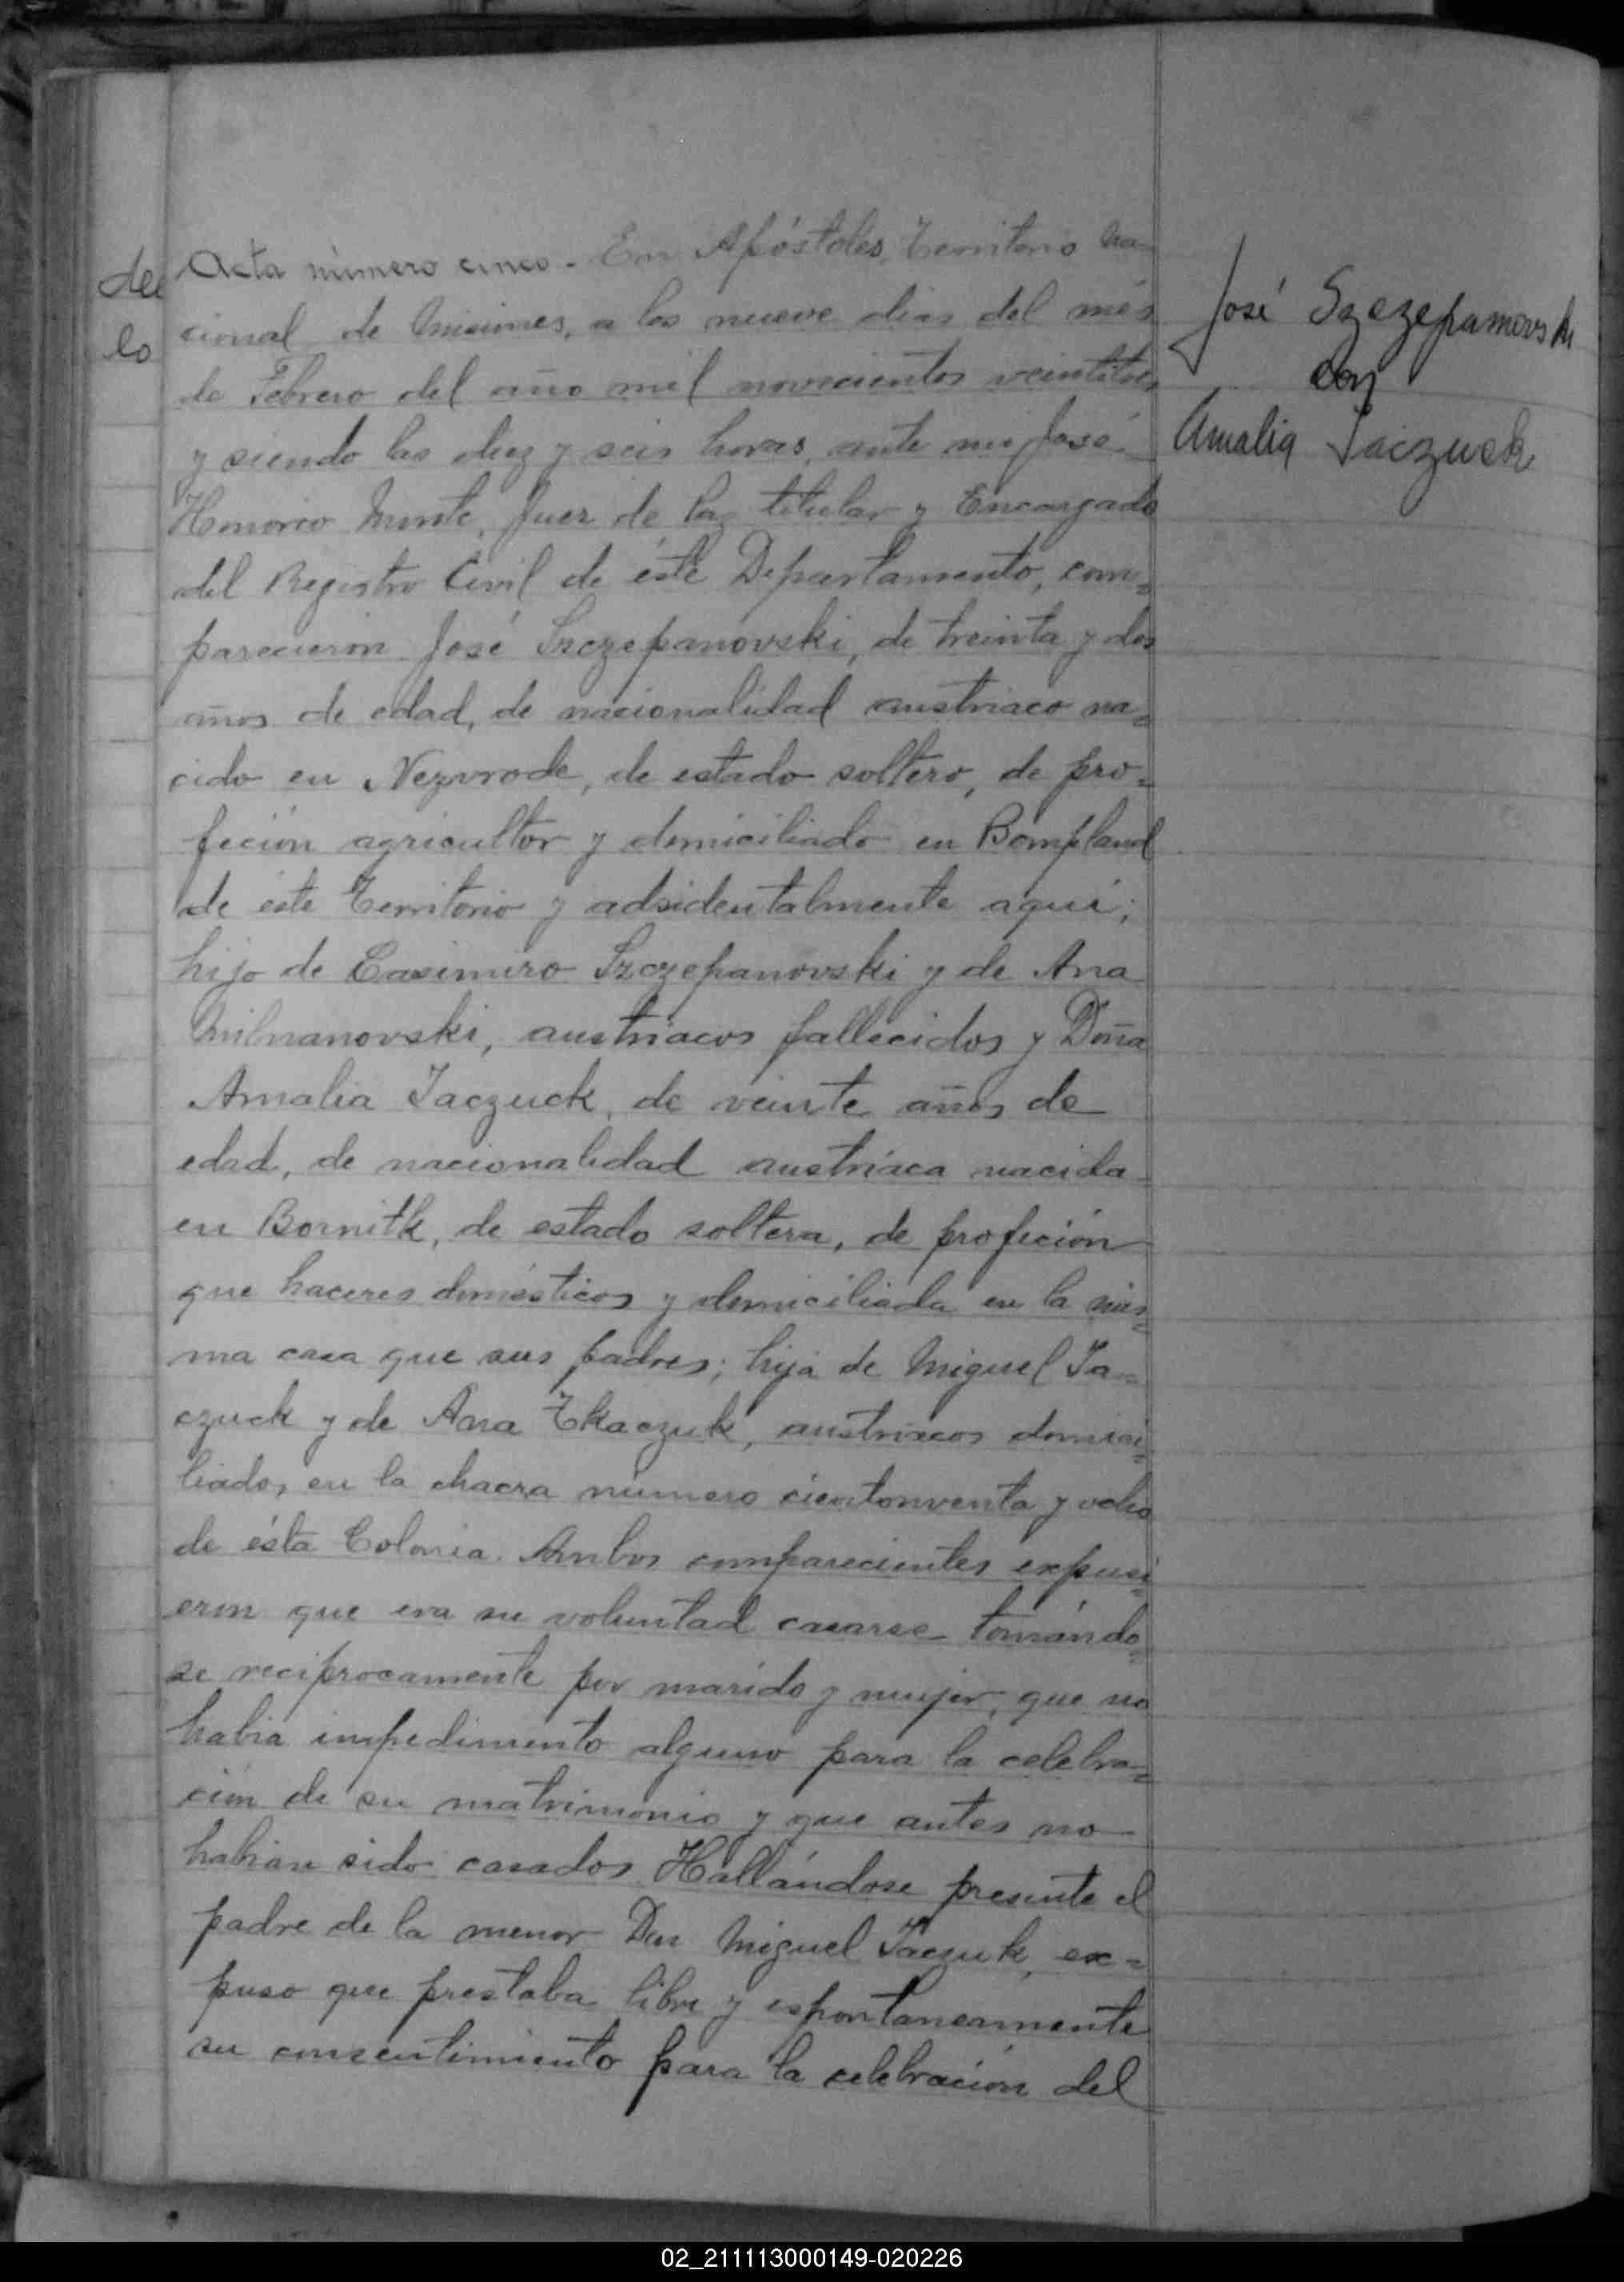 Acta número cinco. En Apóstoles, Territorio na=
cional de Misiones, a los nueve dias del més
de Febrero del año mil novecientos veintitres
y siendo las diez y seis horas, ante mi José
Honorio, Juez de Paz titular y Encargado
del Registro Civil de éste Departamento, com=
parecieron José Szczepanovski, de treinta y dos
años de edad, de nacionalidad austriaco na=
cido en Nezvrode, de estado soltero, de pro=
feción agricultor y domiciliado en Bompland
de éste Territorio y adsidentalmente aquí;
hijo de Casimiro Szczepanovski y de Ana
Milnanovski, austriacos fallecidos y Doña
Amalia Jaczuck, de veinte años de
edad, de nacionalidad austríaca nacida
en Bornitk, de estado soltera, de profeción
que haceres domésticos y domiciliada en la mis=
ma casa que sus padres; hija de Miguel Ja=
czuck y de Ana Tkaczuk, austriacos domici=
liados en la chacra número cientonventa y ocho
de ésta Colonia. Ambos comparecientes expusi=
eron que era su voluntad casarse tomándo=
se reciprocamente por marido y mujer, que no
habia impedimento alguno para la celebra=
ción de su matrimonio y que antes no
habian sido casados. Hallándose presente el
padre de la menor Don Miguel Jaczuk, ex=
puso que prestaba libre y espontaneamente
su consentimiento para la celebración del
José Szczepamovski
con
Amalia Jaczuck
de
lo
02_211113000149-020226